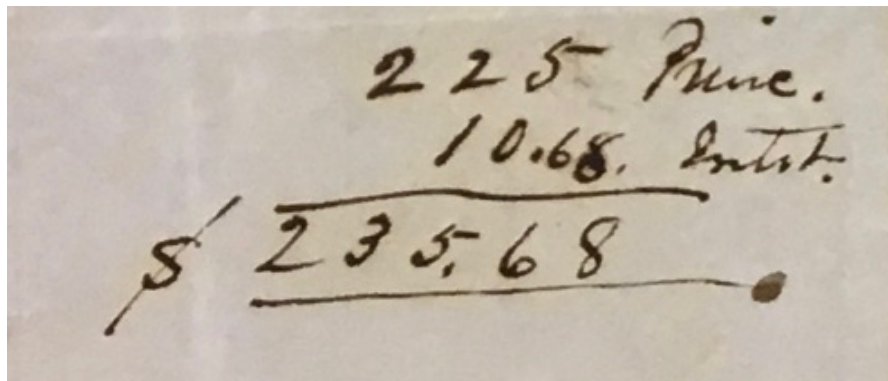 225 Princ.
10.68. Intst.
$ 235.68